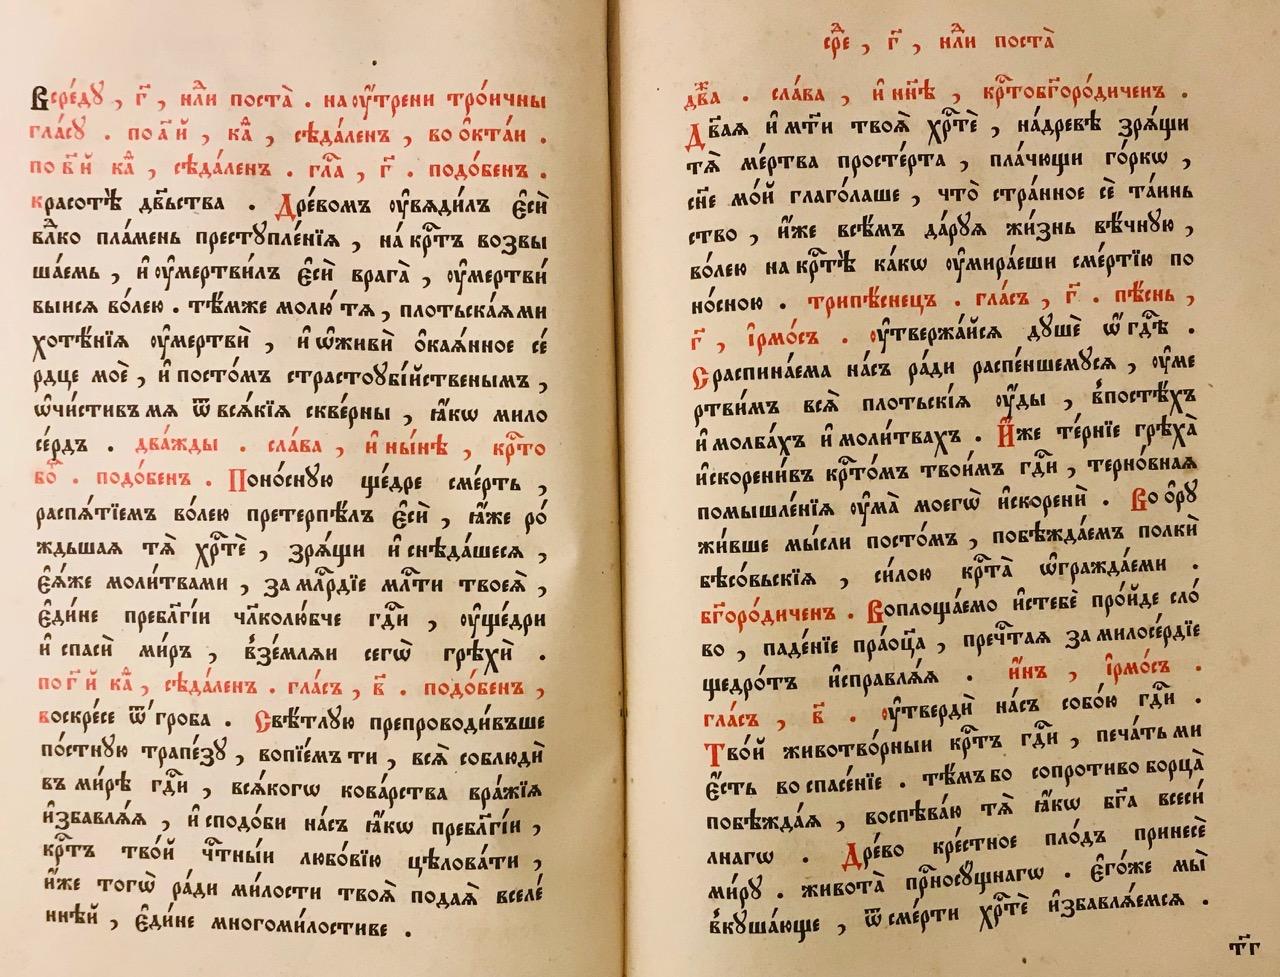 Всре́дꙋ , г҃ , нлⷣи поста̀ . наᲂу҆́трени трⷪ҇ичны
гла́сꙋ . поа҃й , каⷴ , сѣда́ленъ , во ѻ҆кта́и .
по в҃й каⷴ , сѣда́ленъ . глⷭ҇а , г҃ . подо́бенъ .
красотѣ̀ дв҃ьства . Дре́вомъ ᲂу҆вѧди́лъ є҆сѝ
влⷣко пла́мень престꙋпле́нїѧ , на́ крⷭ҇тъ возвы
ша́емь , и҆ ᲂу҆мертви́лъ є҆сѝ врага̀ , ᲂу҆мертви́
выисѧ во́лею . тѣ́мже молю́ тѧ , плотьска́ѧми
хотѣ́нїѧ ᲂу҆мертвѝ , и҆ ѡ҆живѝ ѻ҆каѧ́нное се́
рдце моѐ , и҆ посто́мъ страстоубі́йственымъ ,
ѡ҆чи́стивъ мѧ ѿ всѧ́кїѧ скве́рны , ꙗ҆́кѡ мило
се́рдъ . два́жды . сла́ва , и҆ ны́нѣ , крⷭ҇то
боⷢ҇ . подо́бенъ . Поно́снꙋю ще́дре сме́рть ,
распѧ́тїемъ во́лею претерпѣ́лъ є҆сѝ , ꙗ҆́же ро́
ждьшаѧ тѧ̀ хрⷭ҇тѐ , зрѧ́щи и҆ снѣда́шесѧ ,
є҆ѧ́же моли́твами , за млⷭ҇рдїе млⷭ҇ти твоеѧ̀ ,
є҆ди́не преблг҃і́и чл҃колю́бче гдⷭ҇и , ᲂу҆ще́дри
и҆ спасѝ ми́ръ , в҆зе́млѧи сегѡ̀ грѣхѝ .
по г҃ й каⷴ , сѣда́ленъ . гла́съ , в҃ . подо́бенъ ,
воскре́се ѿ гро́ба . Свѣ́тлꙋю препроводи́въше
по́стнꙋю трапе́зꙋ , вопїе́мъ ти , всѧ̀ соблюдѝ
въ ми́рѣ гдⷭ҇и , всѧ́когѡ кова́рства вра́жїѧ
и҆збавлѧ́ѧ , и҆ сподо́би на́съ ꙗ҆́кѡ преблг҃і́и ,
крⷭ҇тъ тво́й чⷭ҇тны́и любо́вїю цѣлова́ти ,
и҆́же тогѡ̀ ра́ди ми́лости твоѧ̀ подаѧ̀ вселе́
ннѣй , є҆ди́не многоми́лостиве .
срⷣе , г҃ , нлⷣи поста̀
двⷤа . сла́ва , и҆ нн҃ѣ , крⷭ҇тобг҃оро́диченъ .
Дв҃аѧ и҆ мт҃и твоѧ̀ хрⷭ҇тѐ , на́древѣ зрѧ́щи
тѧ̀ ме́ртва просте́рта , пла́чющи го́ркѡ ,
сн҃е мо́й глаго́лаше , что̀ стра́нное сѐ та́инь
ство , и҆́же всѣ́мъ да́рꙋѧ жи́знь вѣ́чнꙋю ,
во́лею на крⷭ҇тѣ̀ ка́кѡ ᲂу҆мира́еши сме́ртїю по
но́сною . трипѣ́снецъ . гла́съ , г҃ . пѣ́снь ,
г҃ , і҆рмо́съ . ᲂу҆твержа́йсѧ дꙋшѐ ѡ҆ гдⷭ҇ѣ .
Сраспина́ема на́съ ра́ди распе́ншемꙋсѧ , ᲂу҆ме
ртви́мъ всѧ̀ пло́тьскїѧ ᲂу҆́ды , в҆посте́хъ
и҆ молба́хъ и҆ моли́твахъ . И҆́же те́рнїе грѣха̀
и҆скорени́въ крⷭ҇то́мъ твои́мъ гдⷭ҇и , терно́внаѧ
помышле́нїѧ ᲂу҆ма̀ моегѡ̀ и҆скоренѝ . Во ѻ҆рꙋ
жи́вше мы́сли посто́мъ , побѣжда́емъ полкѝ
бѣсо́вьскїѧ , си́лою крⷭ҇та̀ ѡ҆гражда́еми .
бг҃оро́диченъ . Воплоща́емо и҆стебѐ про́йде сло́
во , паде́нїе пра́ѻц҃а , пречⷭ҇таѧ за милосе́рдїе
щедро́тъ и҆справлѧ́ѧ . и҆́нъ , і҆рмо́съ .
гла́съ , в҃ . ᲂу҆твердѝ на́съ собо́ю гдⷭ҇и .
Тво́й животво́рныи крⷭ҇тъ гдⷭ҇и , печа́ть ми
є҆́сть во спасе́нїе . тѣ́мъ бо сопротиво борца̀
побѣжда́ѧ , воспѣва́ю тѧ̀ ꙗ҆́кѡ бг҃а всеси́
лнагѡ . Дре́во кре́стное пло́дъ принесѐ
ми́рꙋ . живота̀ прⷭ҇носꙋ́щнагѡ . є҆го́же мы̀
в҆кꙋша́юще , ѿ сме́рти хрⷭ҇тѐ и҆збавлѧ́емсѧ .
т҃г